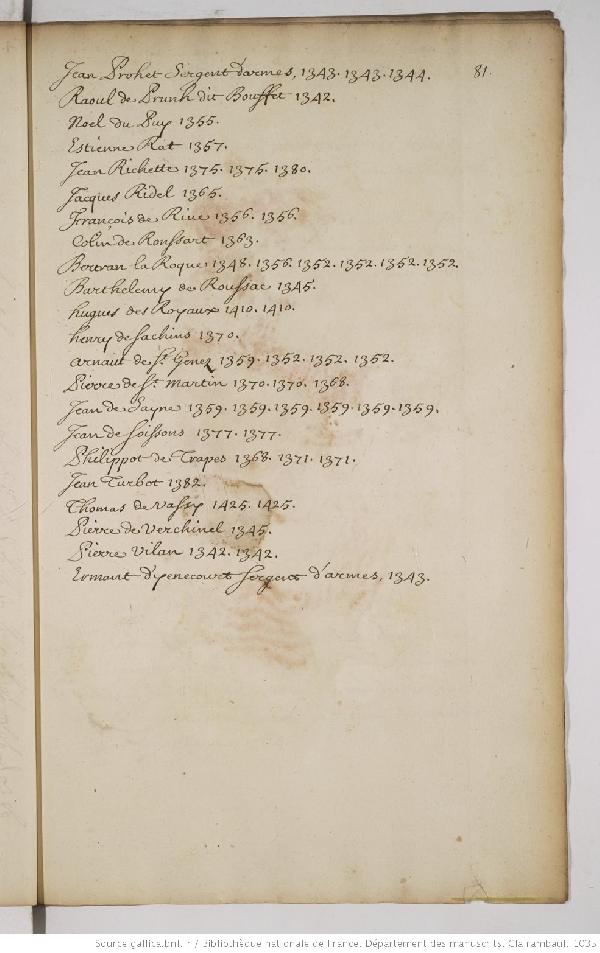 Jean Prohet Sergent d'armes, 1343. 1343. 1344. 81.
Raoul de Prunh dit Bouffet 1342.
Noel du Puy 1355.
Estienne Rat 1357.
Jean Richette 1375. 1375. 1380.
Jacques Ridel 1365.
François de Riue 1356. 1356.
Colin de Roussart 1363.
Bertran la Roque 1348. 1356. 1352. 1352. 1352. 1352.
Barthelemy de Roussac 1345.
hugues des Royaux 1410. 1410.
henry de Sachins 1370.
arnaut de St. Genez 1359. 1352. 1352. 1352.
Pierre de St. martin 1370. 1370. 1368.
Jean de Sayne 1359. 1359. 1359. 1359. 1359. 1359.
Jean de soissons 1377. 1377.
Philippot de Trapes 1368. 1371. 1371.
Jean Turbot 1382.
Thomas de vassy 1425. 1425.
Pierre de verchinel 1345.
Pierre vilan 1342. 1342.
Sergent d'armes, 1343.
Source gallica.bnf.fr / Bibliothèque nationale de France. Département des manuscrits. Clairambault 1035